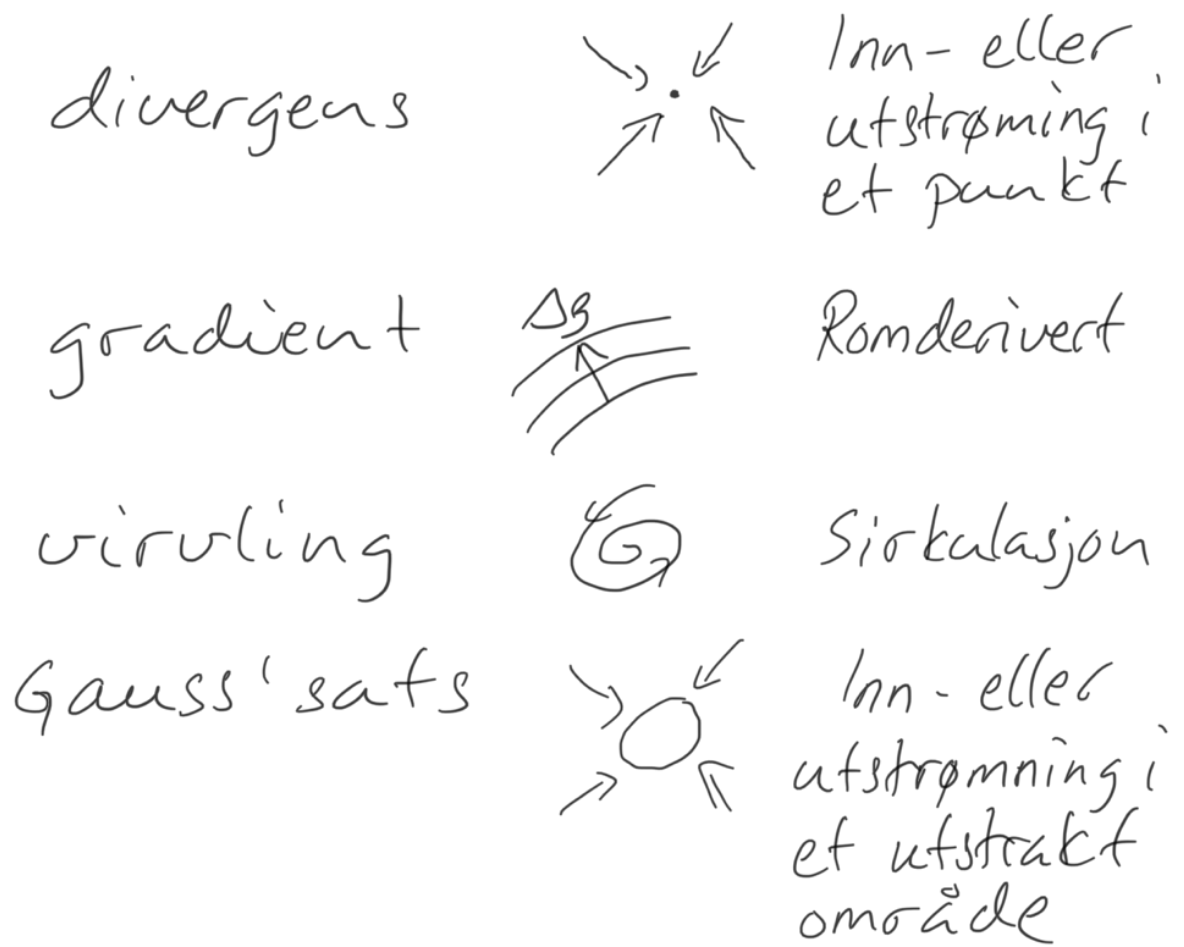 divergens
Inn- eller
utstrøming i
et punkt
gradient
Δβ
Romderivert
virvling
Sirkulasjon
Gauss' sats
Inn- eller
utstrømning i
et utstrakt
område